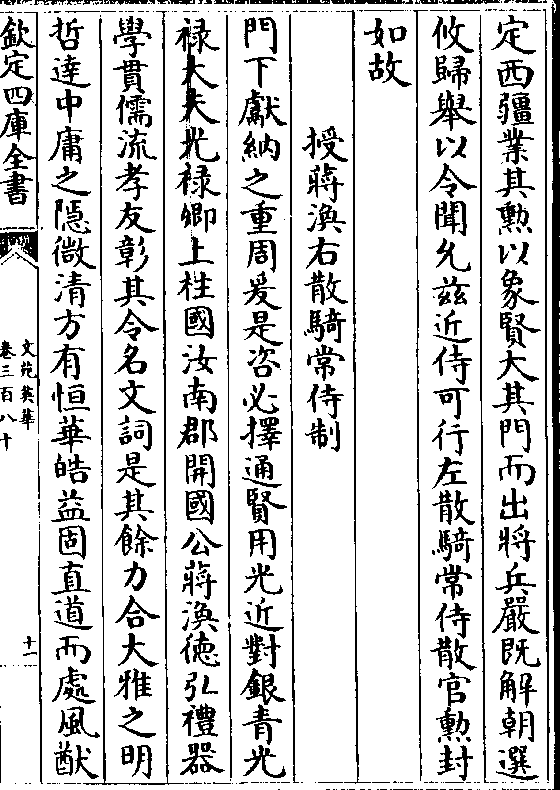 定西疆業其勲以象賢大其門而出將兵嚴既解朝選
攸歸舉以令聞允兹近侍可行左散騎常侍散官勲封
如故
授蔣渙右散騎常侍制
門下獻納之重周爰是咨必擇通賢用光近對銀青光
禄大夫光禄卿上柱國汝南郡開國公蔣渙徳弘禮器
學貫儒流孝友彰其令名文詞是其餘力合大雅之明
哲達中庸之隠微清方有恒華皓益固直道而處風猷
欽定四庫全書
文苑英華
卷三百八十
十一